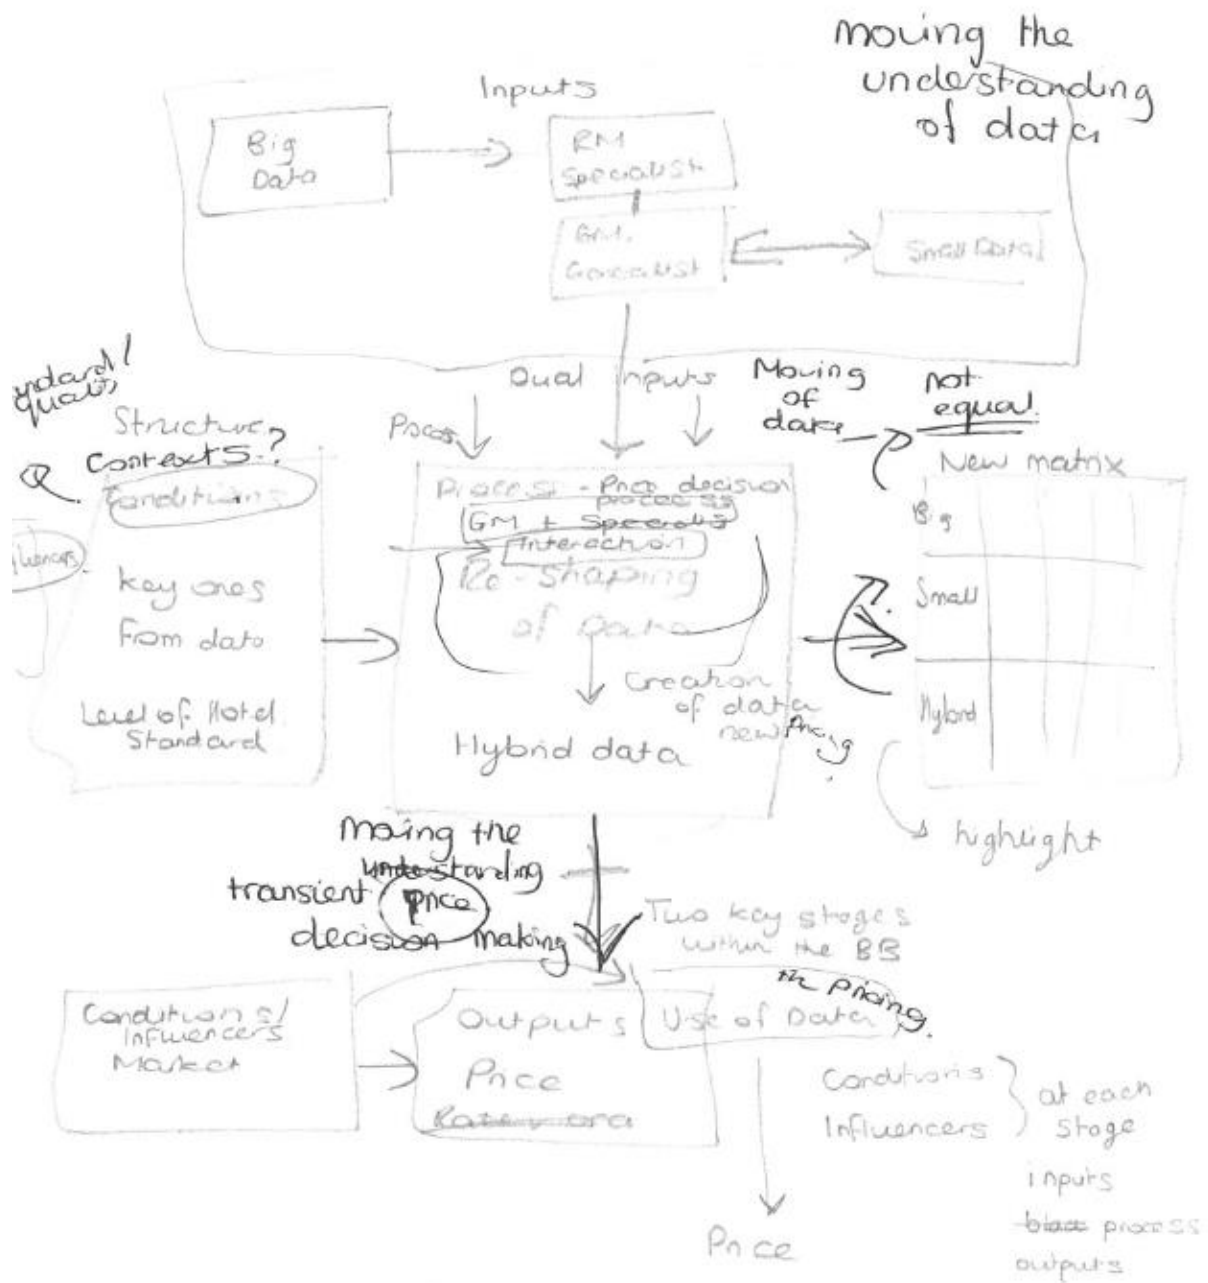 moving the
understanding
of data
Inputs
Big
Data
RM
Specialist
GM.
Small Data
Dual Inputs
Moving
of
data
not
equal.
Process
Structure
Contexts?
Conditions
key ones
From data
Level of Hotel
Standard
Process - Price decision
process
GM + Specialist
Interaction
Re-shaping
of Data
Creation
of data
new Pricing
Hybrid data
New matrix
Big
Small
Hybrid
highlight
moving the
understanding
transient price
decision making
Two key stages
within the BB
the pricing.
Use of Data
Conditions/
Influencers
Market
Outputs
Price
Conditions
Influencers
at each
stage
inputs
process
outputs
Price